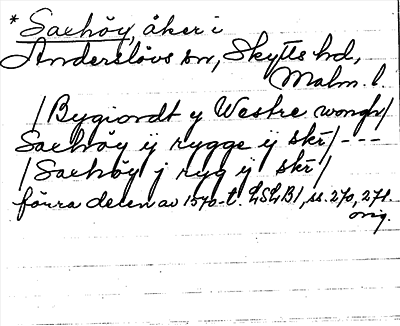 * Saehöy, åker i
Anderslövs sn, Skytts hd,
Malm. l.
/Bygiordt y Westre wongh/
Saehöy ij rygge ij skr/ - - -
/Saehöy j ryg ij skr/
förra delen av 1570-t. LSLB1, ss. 270, 271.
orig.